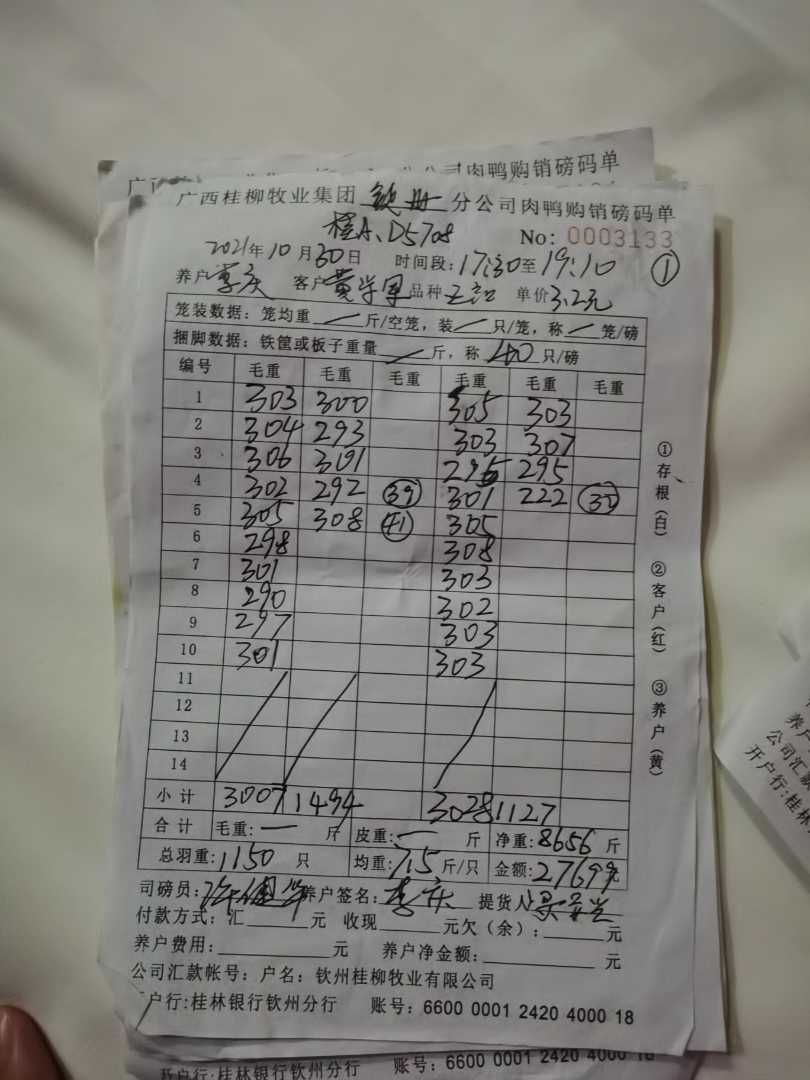 广西桂柳牧业集团 钦州 分公司肉鸭购销磅码单
桂A、D5708 No: 0003133
2021年10月30日 时间段:17:30至19:10 ①
养户 李庆 客户 黄学军 品种 单价3.2元
笼装数据:笼均重 / 斤/空笼,装 / 只/笼,称 / 笼/磅
捆脚数据:铁筐或板子重量 / 斤,称 40 只/磅
编号 毛重 毛重 毛重 毛重 毛重 毛重
1 303 300 305 303
2 304 293 303 307
3 306 301 295 295
4 302 292 ㊴ 301 222
5 305 308 (41) 305
6 298 308
7 301 303
8 290 302
9 297 303
10 301 303
11
12
13
14
小计 3007 1494 3028 1127
合计 毛重:一 斤 皮重:一 斤 净重:8656 斤
总羽重:1150 只 均重:7.5斤/只 金额:27699元
司磅员: 养户签名:李庆 提货人
付款方式:汇 元 收现 元欠(余): 元
养户费用: 元 养户净金额: 元
公司汇款帐号:户名:钦州桂柳牧业有限公司
户行:桂林银行钦州分行 账号:6600 0001 2420 4000 18
①存根(白) ②客户(红) ③养户(黄)
公司肉鸭购销磅码单
开户行:桂林银行钦州分行 账号:6600 0001 2420 4000 18
养户
公司汇款
开户行:桂林